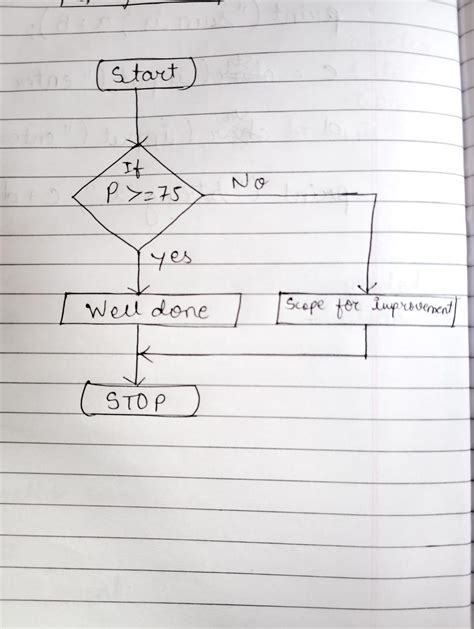 Start
If
P >= 75
No
Yes
Well done
Scope for improvement
STOP